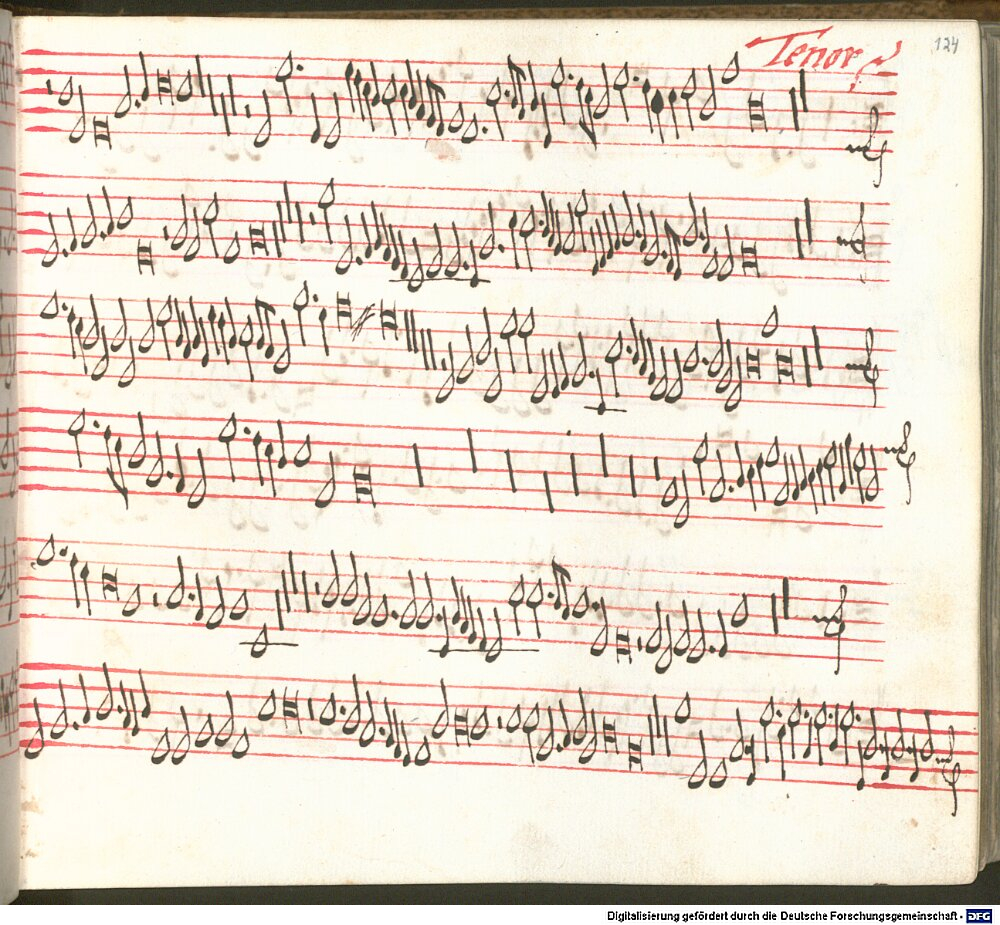 Tenor
124
Digitalisierung gefördert durch die Deutsche Forschungsgemeinschaft - DFG